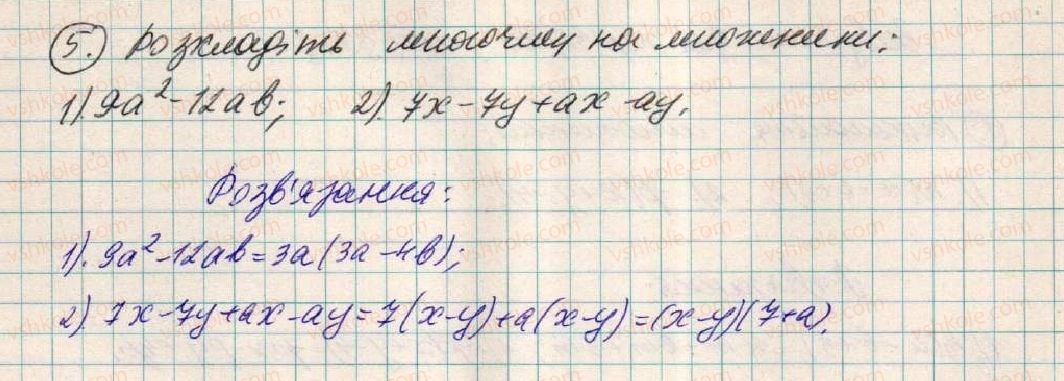 5. Розкладіть многочлен на множники:
1). 9a² - 12ab; 2). 7x - 7y + ax - ay.
Розв'язання:
1). 9a² - 12ab = 3a(3a - 4b);
2). 7x - 7y + ax - ay = 7(x-y) + a(x-y) = (x-y)(7+a).